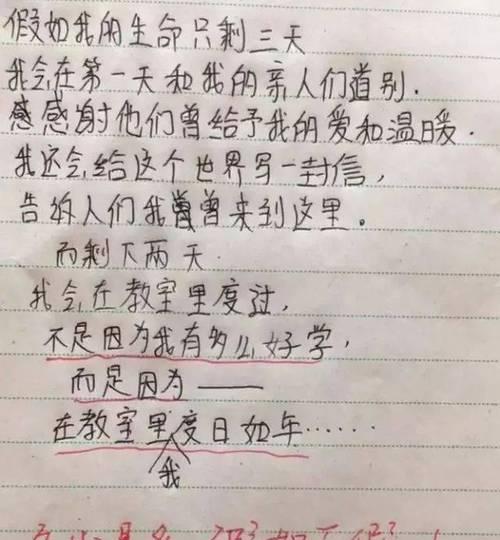 假如我的生命只剩三天
我会在第一天和我的亲人们道别.
感感谢他们曾给予我的爱和温暖.
我还会给这个世界写一封信,
告诉人们我曾曾来到这里。
而剩下两天.
我会在教室里度过,
不是因为我有多么好学,
而是因为——
在教室里度日如年……
我